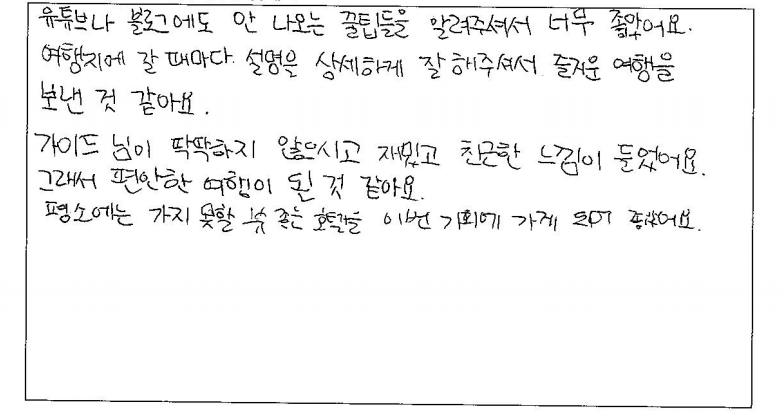 유튜브나 블로그에도 안 나오는 꿀팁들을 알려주셔서 너무 좋았어요.
여행지에 갈 때마다 설명을 상세하게 잘 해주셔서 즐거운 여행을
보낸 것 같아요.
가이드 님이 딱딱하지 않으시고 재밌고 친근한 느낌이 들었어요.
그래서 편안한 여행이 된 것 같아요.
평소에는 가지 못할 좋은 호텔을 이번 기회에 가게 되어 좋았어요.